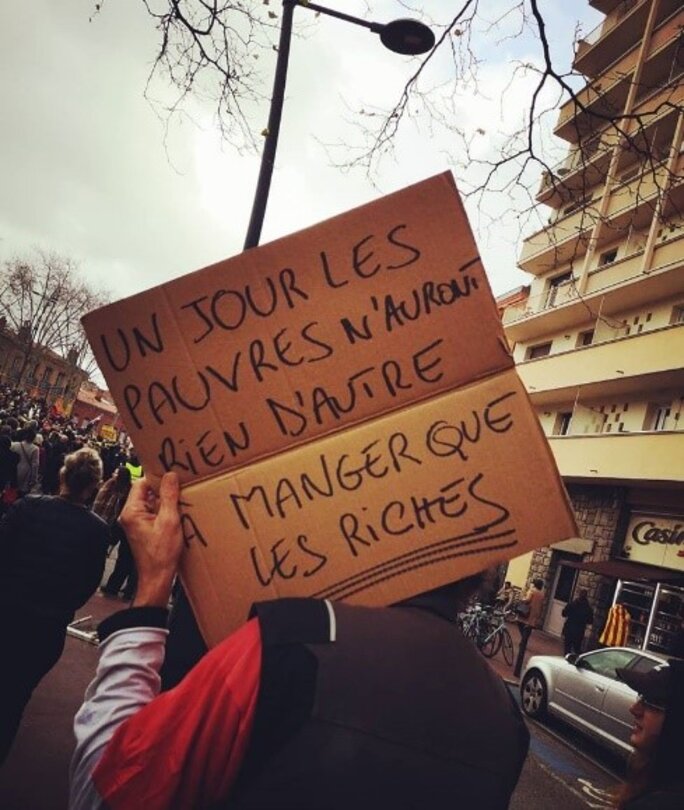 UN JOUR LES
PAUVRES N'AURONT
RIEN D'AUTRE
À MANGER QUE
LES RICHES